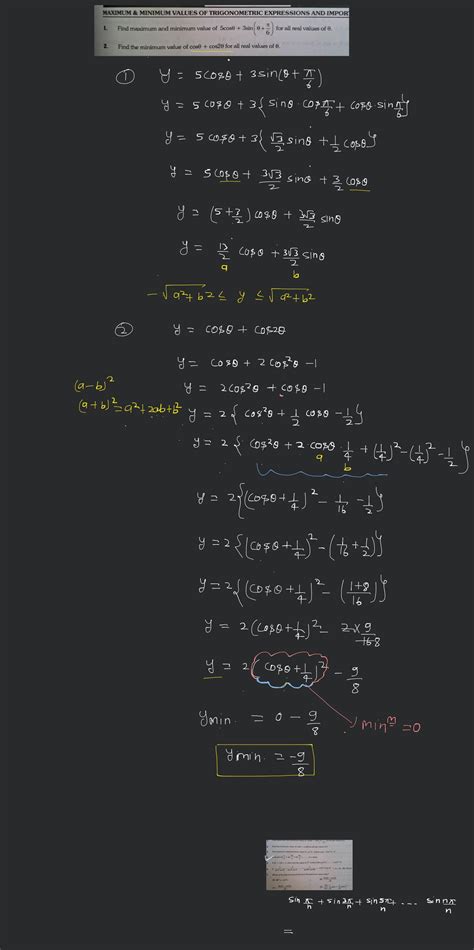 MAXIMUM & MINIMUM VALUES OF TRIGONOMETRIC EXPRESSIONS AND IMPOR
1. Find maximum and minimum value of 5cosθ + 3sin(θ + π/6) for all real values of θ.
2. Find the minimum value of cosθ + cos2θ for all real values of θ.
① y = 5cosθ + 3sin(θ + π/6)
y = 5cosθ + 3{sinθ · cos π/6 + cosθ · sin π/6}
y = 5cosθ + 3{√3/2 sinθ + 1/2 cosθ}
y = 5cosθ + 3√3/2 sinθ + 3/2 cosθ
y = (5 + 3/2) cosθ + 3√3/2 sinθ
y = 13/2 cosθ + 3√3/2 sinθ
a b
-√a²+b² ≤ y ≤ √a²+b²
② y = cosθ + cos2θ
y = cosθ + 2cos²θ - 1
(a-b)²
y = 2cos²θ + cosθ - 1
(a+b)² = a²+2ab+b²
y = 2{cos²θ + 1/2 cosθ - 1/2}
y = 2{cos²θ + 2 cosθ · 1/4 + (1/4)² - (1/4)² - 1/2}
a b
y = 2{(cosθ + 1/4)² - 1/16 - 1/2}
y = 2{(cosθ + 1/4)² - (1/16 + 1/2)}
y = 2{(cosθ + 1/4)² - (1+8/16)}
y = 2(cosθ + 1/4)² - 2×9/16 8
y = 2(cosθ + 1/4)² - 9/8
ymin. = 0 - 9/8
minᵐ = 0
ymin. = -9/8
sin π/n + sin 3π/n + sin 5π/n + ---- sin nπ/n
=